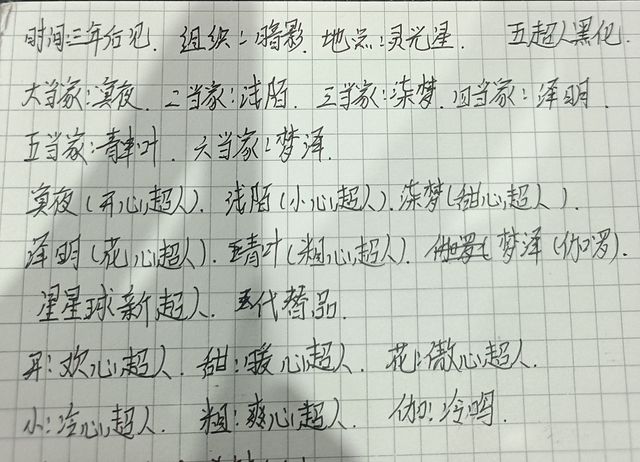 时间:三年后见. 组织:暗影. 地点:灵光星. 五超人黑化.
大当家:冥夜. 二当家:浅陌. 三当家:柒梦. 四当家:泽明.
五当家:青叶. 六当家:梦泽.
冥夜(开心超人). 浅陌(小心超人). 柒梦(甜心超人).
泽明(花心超人). 青叶(粗心超人). 梦泽(伽罗).
星星球新超人. 五代替品.
开:欢心超人. 甜:暖心超人. 花:傲心超人.
小:冷心超人. 粗:爽心超人. 伽:冷鸣.